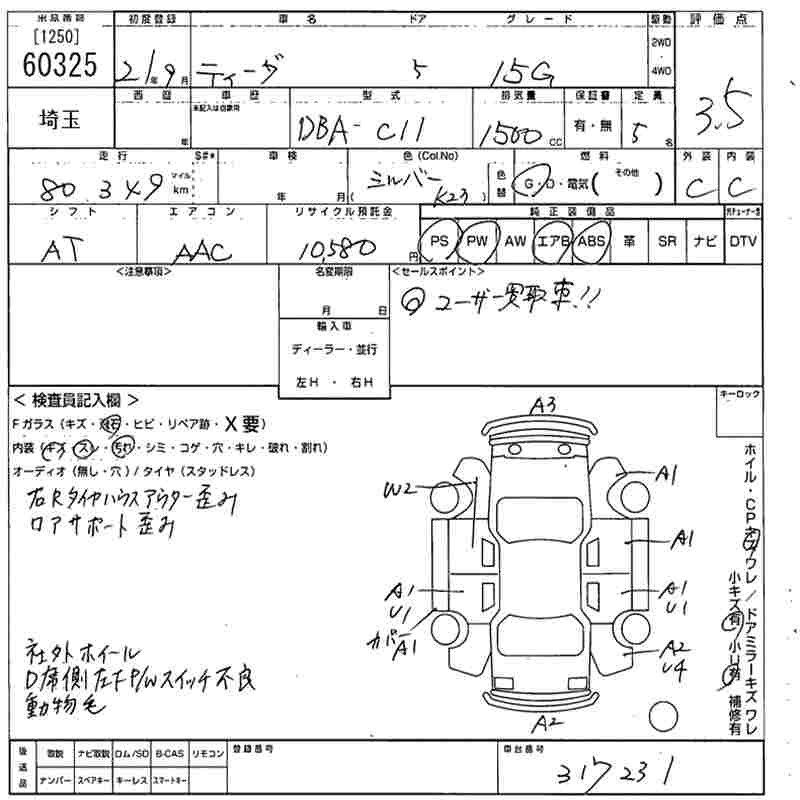 出品番号 初度登録 車名 ドア グレード 駆動 評価点
[1250] 60325 21年9月 ティーダ 5 15G 2WD・4WD 3.5
埼玉 西暦 年 車歴 未記入は自家用 型式 DBA-C11 排気量 1500cc 保証書 有・無 定員 5名
走行 80,349 マイル km S#* 車検 年 月 色(Col,No) シルバー (K23) 色替 燃料 G・D・電気(その他 ) 外装 C 内装 C
シフト AT エアコン AAC リサイクル預託金 10,580円 純正装備品 PS PW AW エアB ABS 革 SR ナビ DTV
<注意事項> 名変期限 月 日 <セールスポイント>
◎ユーザー買取車!!
輸入車
ディーラー・並行
左H ・ 右H
< 検査員記入欄 >
キーロック
Fガラス(キズ・飛石・ヒビ・リペア跡・X要)
内装(キズ・スレ・汚れ・シミ・コゲ・穴・キレ・破れ・割れ)
オーディオ(無し・穴)/タイヤ(スタッドレス)
右Rタイヤハウスアウター歪み
ロアサポート歪み
社外ホイール
D席側左F P/Wスイッチ不良
動物毛
A3
W2
A1
A1
A1
U1
A1
U1
カバー
A1
A2
U4
A2
ホイール・CPキズワレ/ドアミラーキズワレ
小キズ有 小U有 補修有
後送品 取説 ナビ取説 ロム/SD B-CAS リモコン 登録番号 車台番号
ナンバー スペアキー キーレス スマートキー 317231